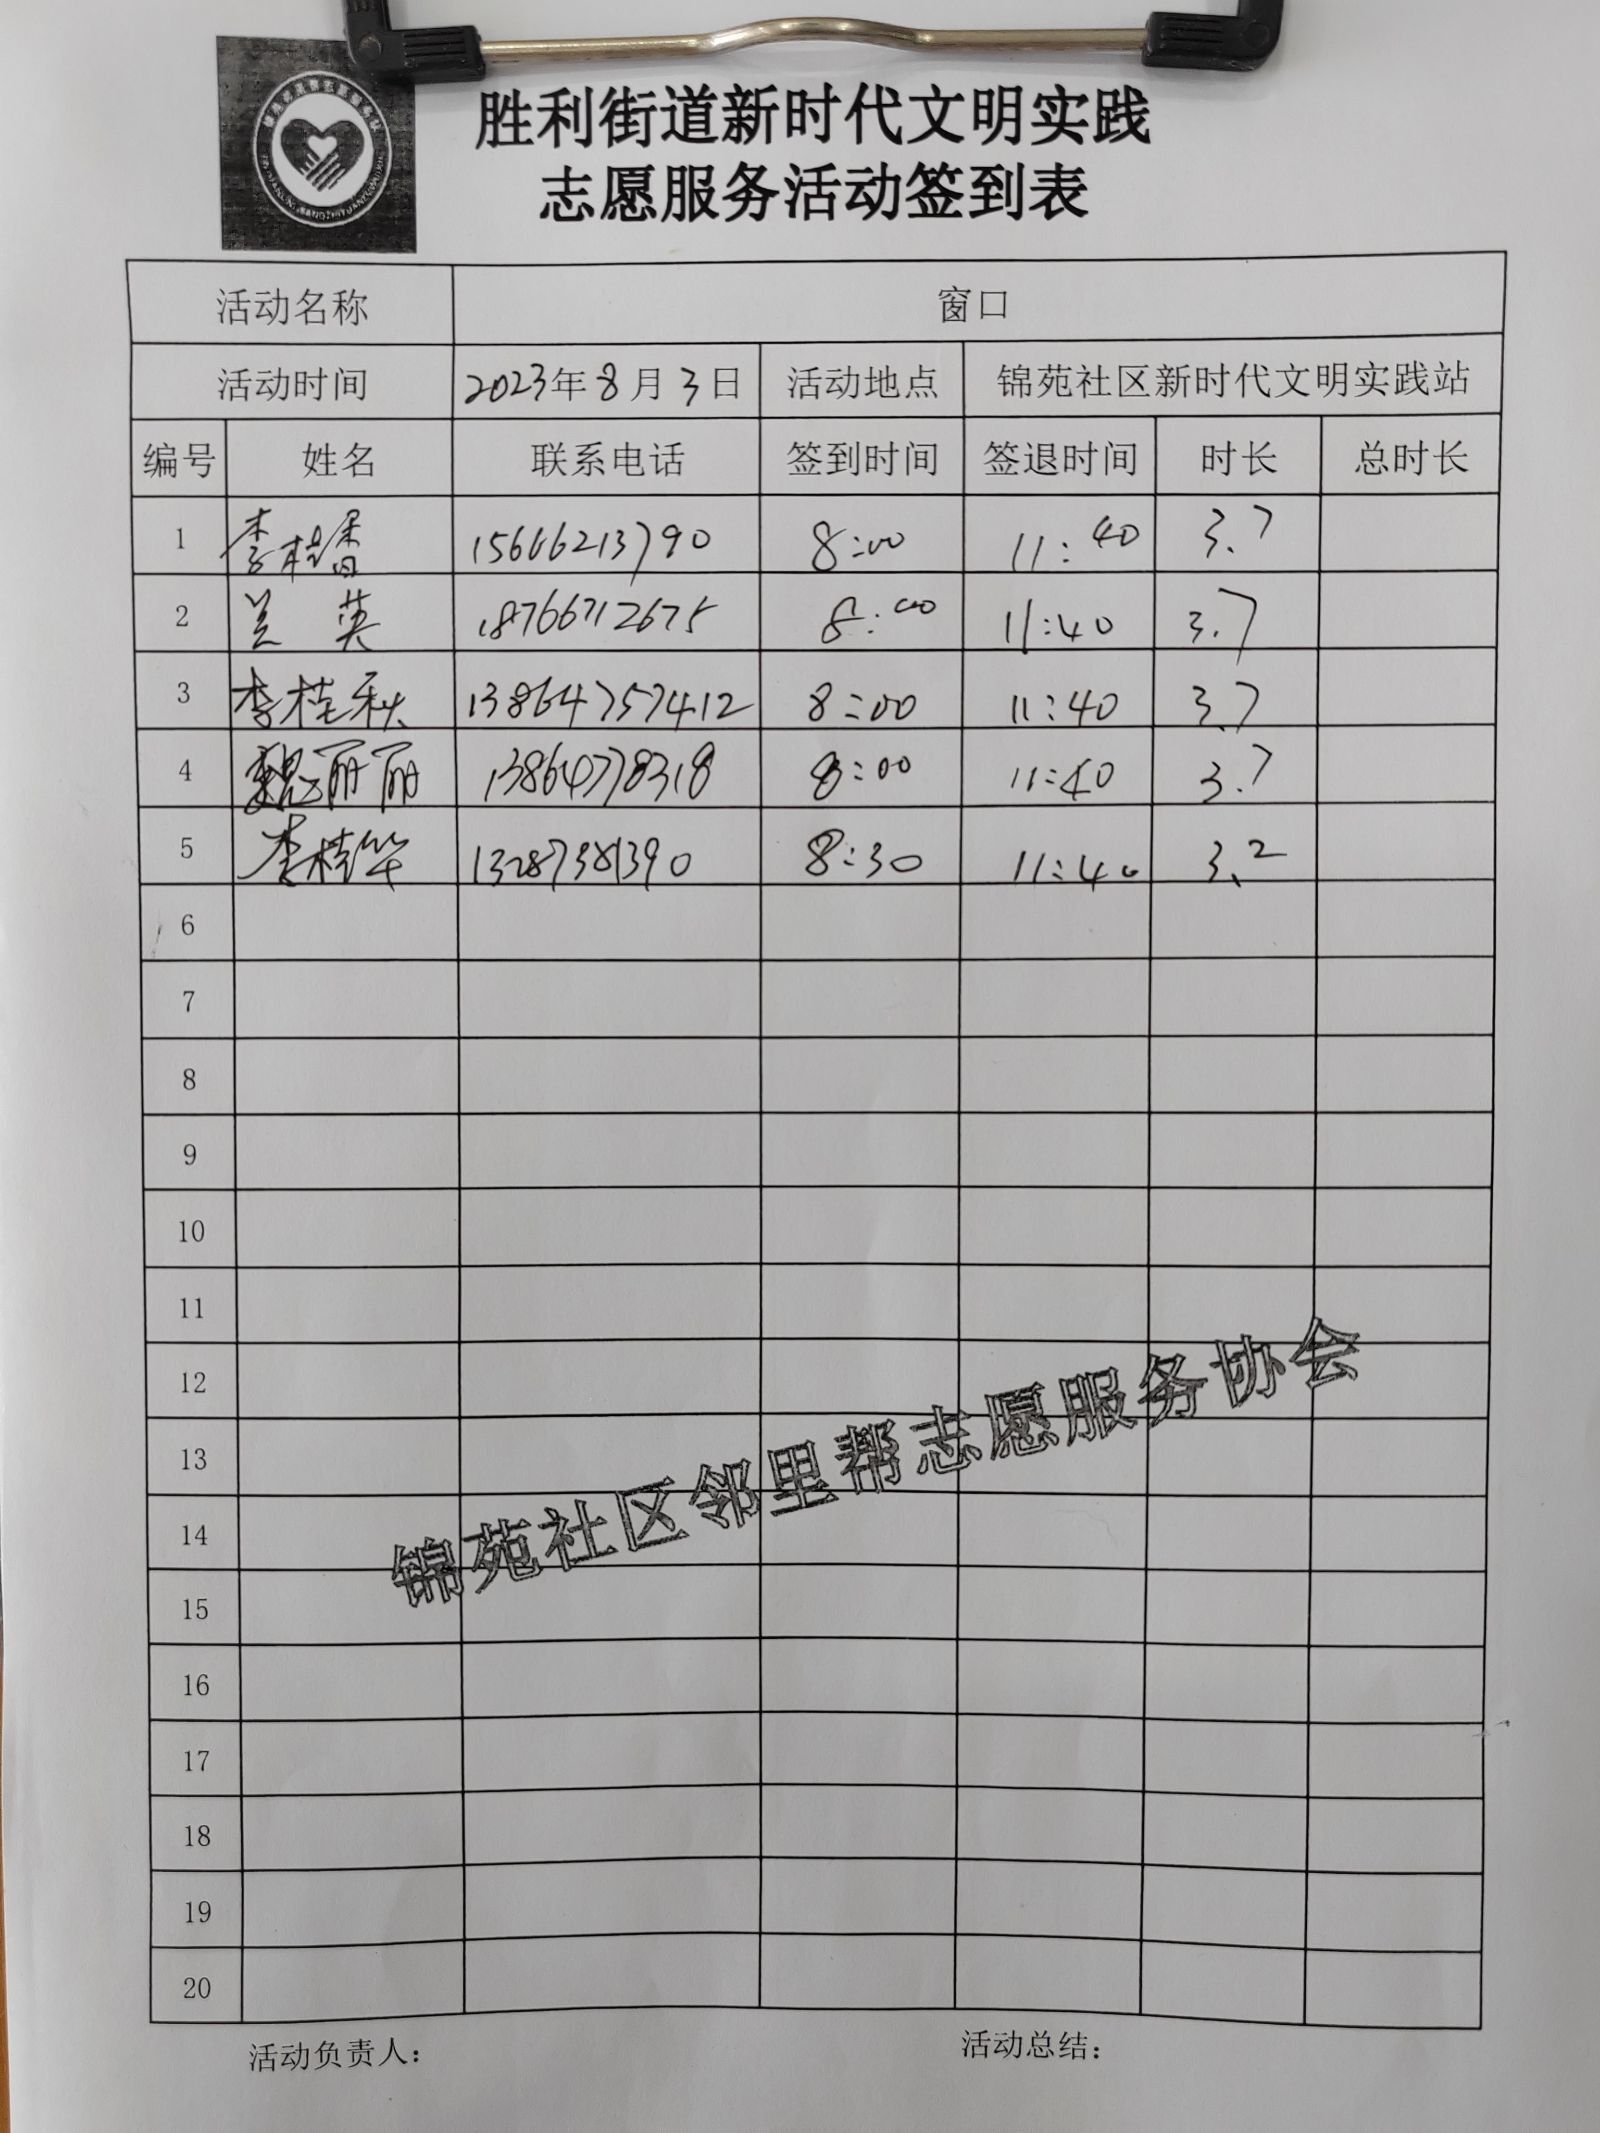 胜利街道新时代文明实践
志愿服务活动签到表
活动名称 窗口
活动时间 2023年8月3日 活动地点 锦苑社区新时代文明实践站
编号 姓名 联系电话 签到时间 签退时间 时长 总时长
1 李桂香 15666213790 8:00 11:40 3.7
2 兰英 18766712675 8:00 11:40 3.7
3 李桂秋 13864757412 8:00 11:40 3.7
4 魏丽丽 13864778318 8:00 11:40 3.7
5 李桂华 13287381390 8:30 11:40 3.2
6
7
8
9
10
11
12
13
14
15
16
17
18
19
20
锦苑社区邻里帮志愿服务协会
活动负责人： 活动总结：